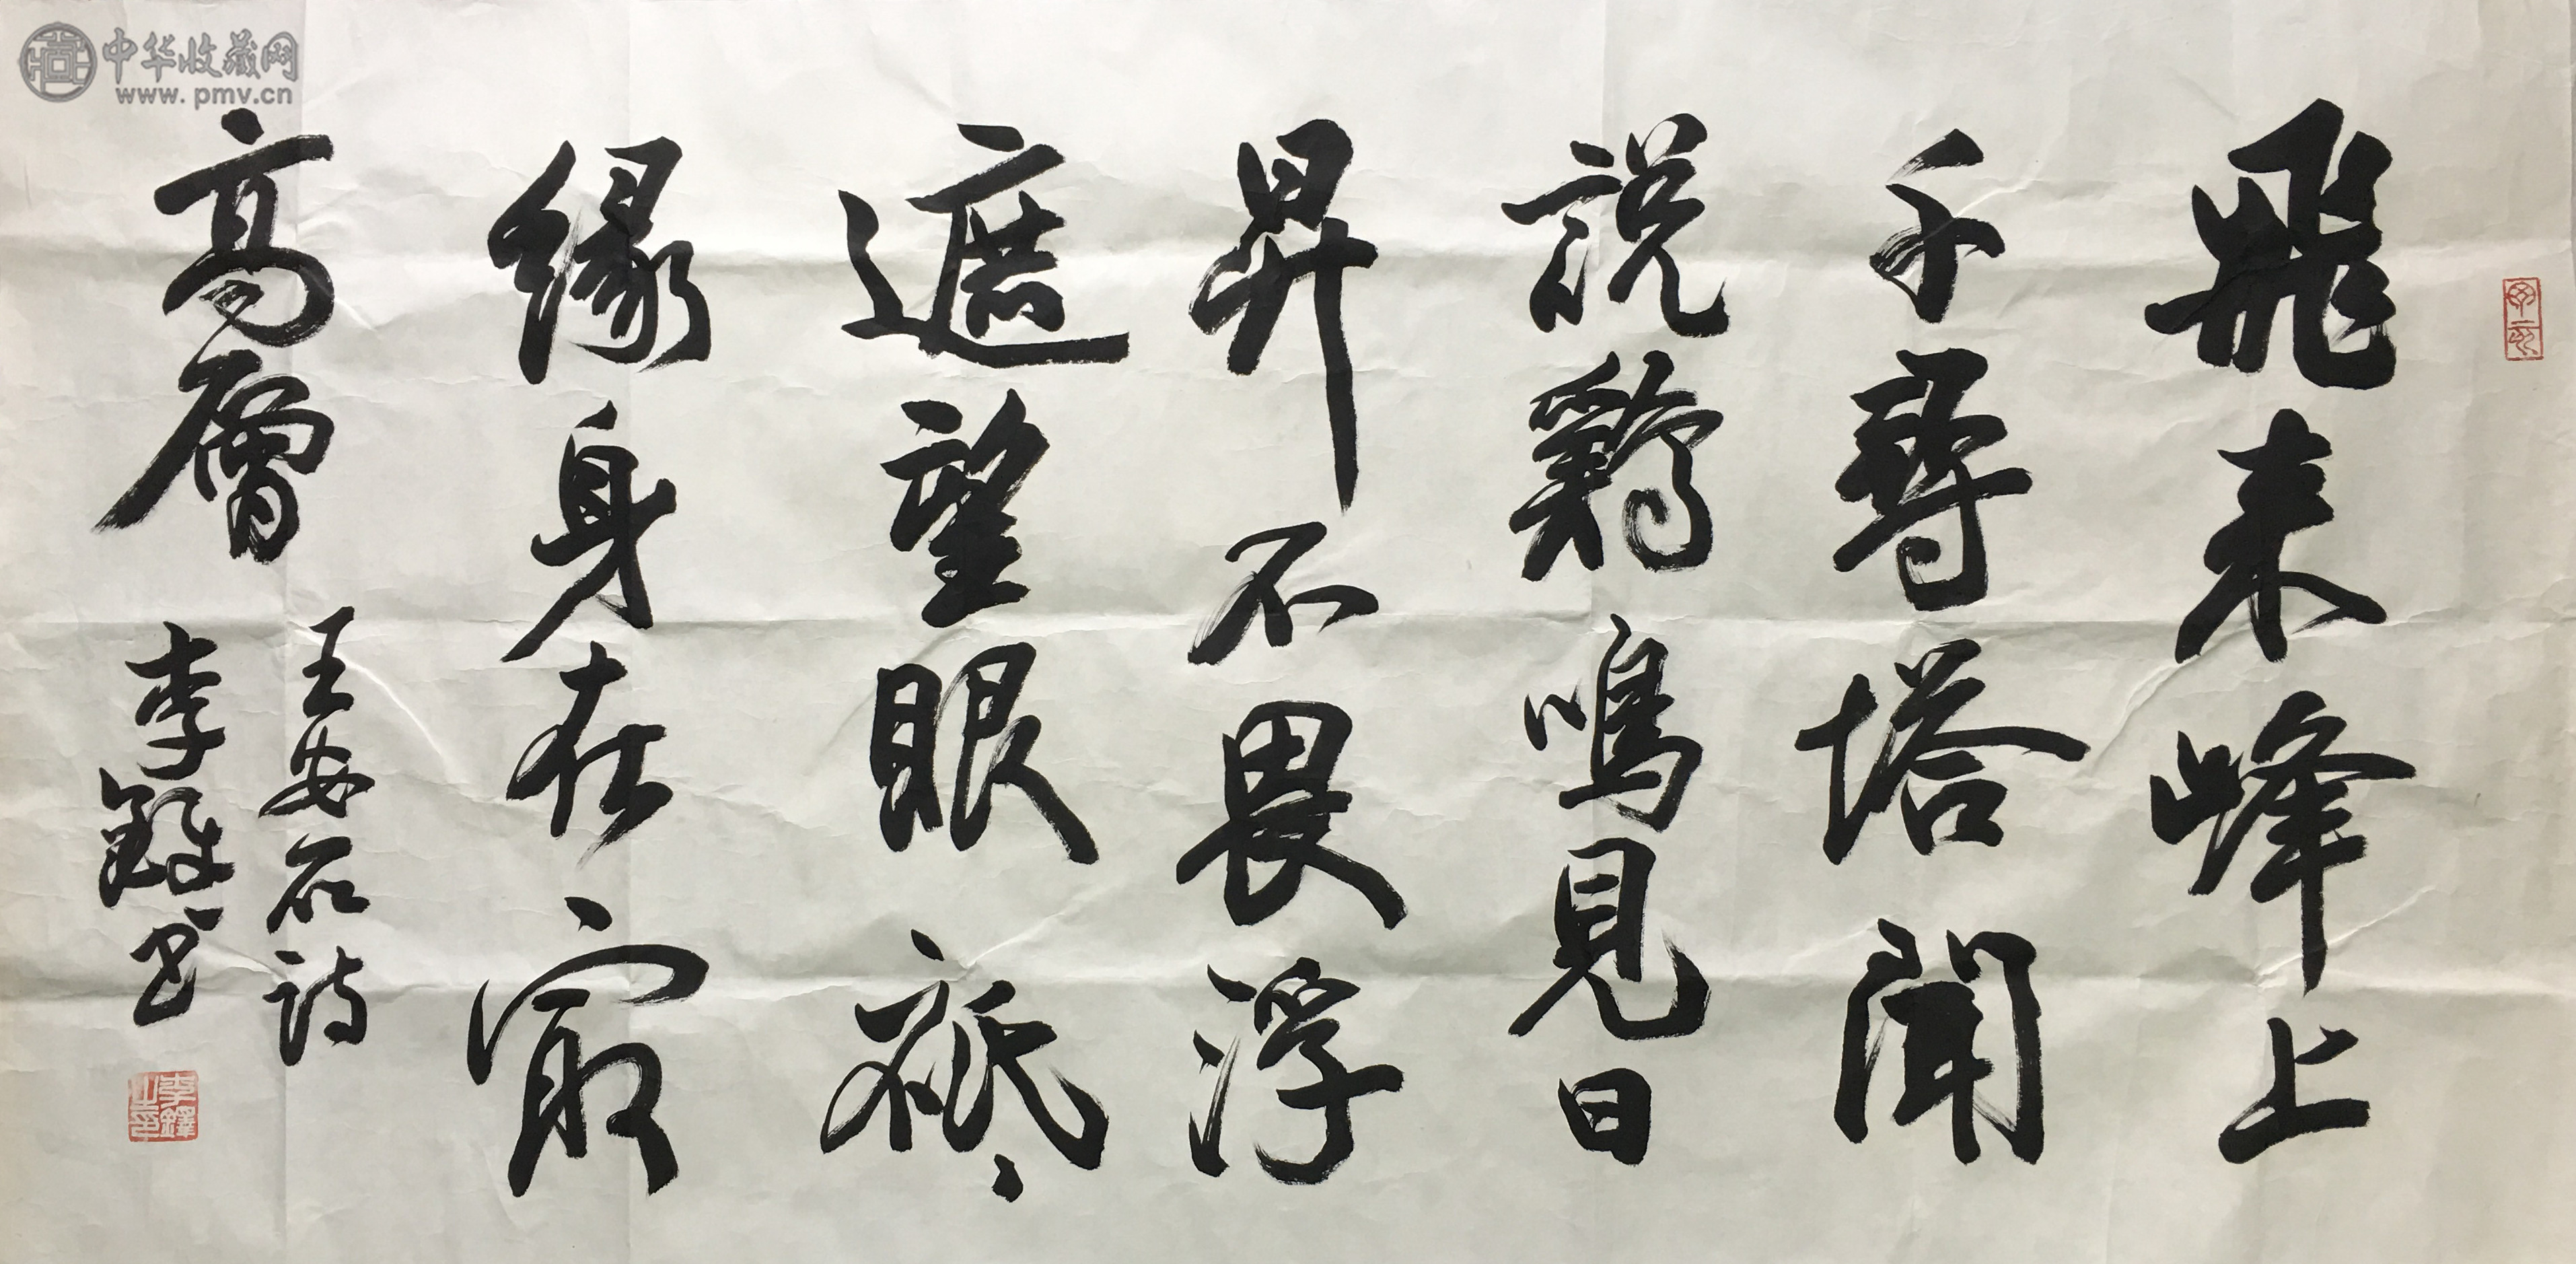 飛来峰上
千尋塔聞
說鷄鳴見日
昇不畏浮
遮望眼祇
緣身在最
高層
王安石詩
李鐸书
李鐸之印
中华收藏网
www.pmv.cn